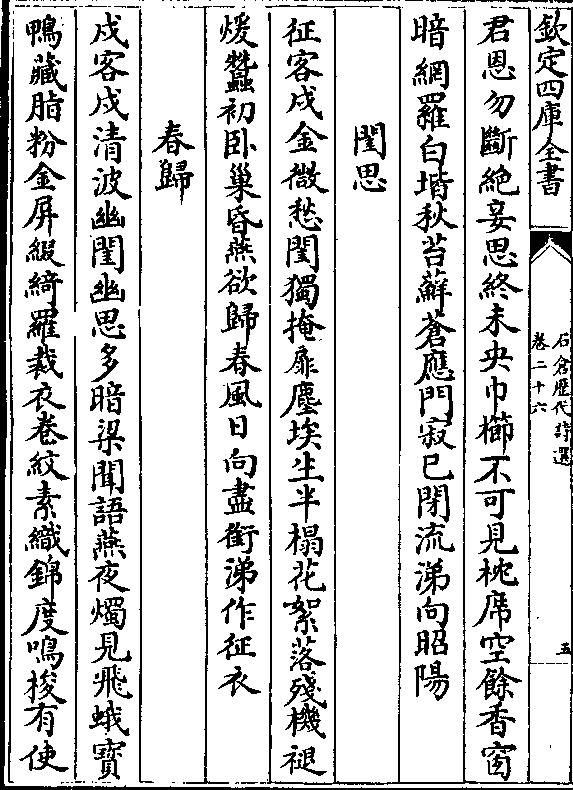 欽定四庫全書
石倉歷代詩選
卷二十六
五
君恩勿斷絶妾思終未央巾櫛不可見枕席空餘香窗
暗網羅白堦秋苔蘚蒼應門寂已閉流涕向昭陽
閨思
征客戍金微愁閨獨掩扉塵埃生半榻花絮落殘機褪
煖蠶初卧巢昏燕欲歸春風日向盡銜涕作征衣
春歸
戍客戍清波幽閨幽思多暗梁聞語燕夜燭見飛蛾寳
鴨藏脂粉金屏綴綺羅裁衣卷紋素織錦度鳴梭有使